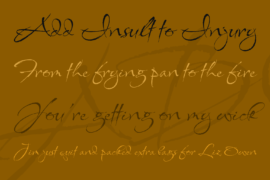 Add Insult to Injury
From the frying pan to the fire
You're getting on my wick
Jim just quit and packed extra bags for Liz Owen